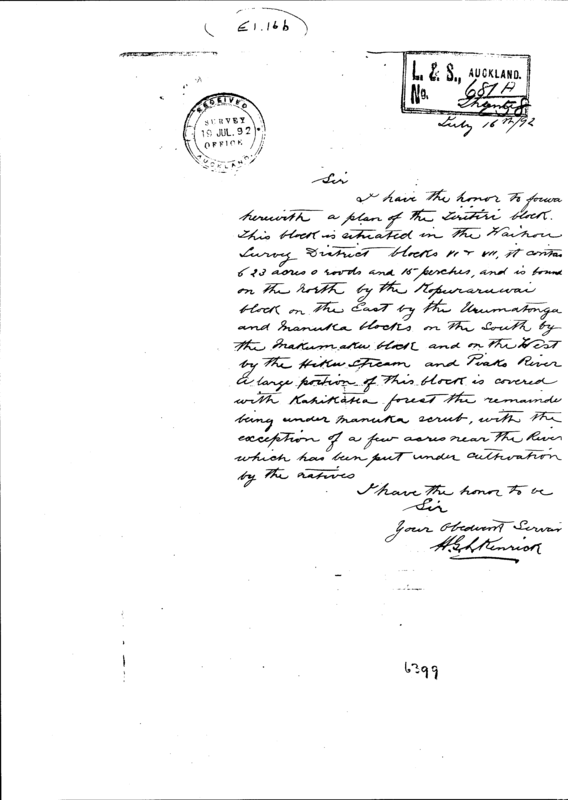 E1.16b
L. & S., AUCKLAND.
No. 687 A
RECEIVED
SURVEY
19 JUL. 92
OFFICE
AUCKLAND
July 16th/92
Sir
I have the honor to forwa
herewith a plan of the Tiritiri block.
This block is situated in the Waihou
Survey District blocks VI & VII, it contas
623 acres 0 roods and 15 perches, and is boun
on the North by the Kopuraruwai
block on the East by the Urumatonga
and Manuka blocks on the South by
the Makumaku block and on the West
by the Hiku Stream and Piako River
A large portion of this block is covered
with Kahikatia forest the remainde
being under Manuka scrub, with the
exception of a few acres near the River
which has been put under cultivation
by the natives
I have the honor to be
Sir
Your Obedient Servan
Kenrick
6399